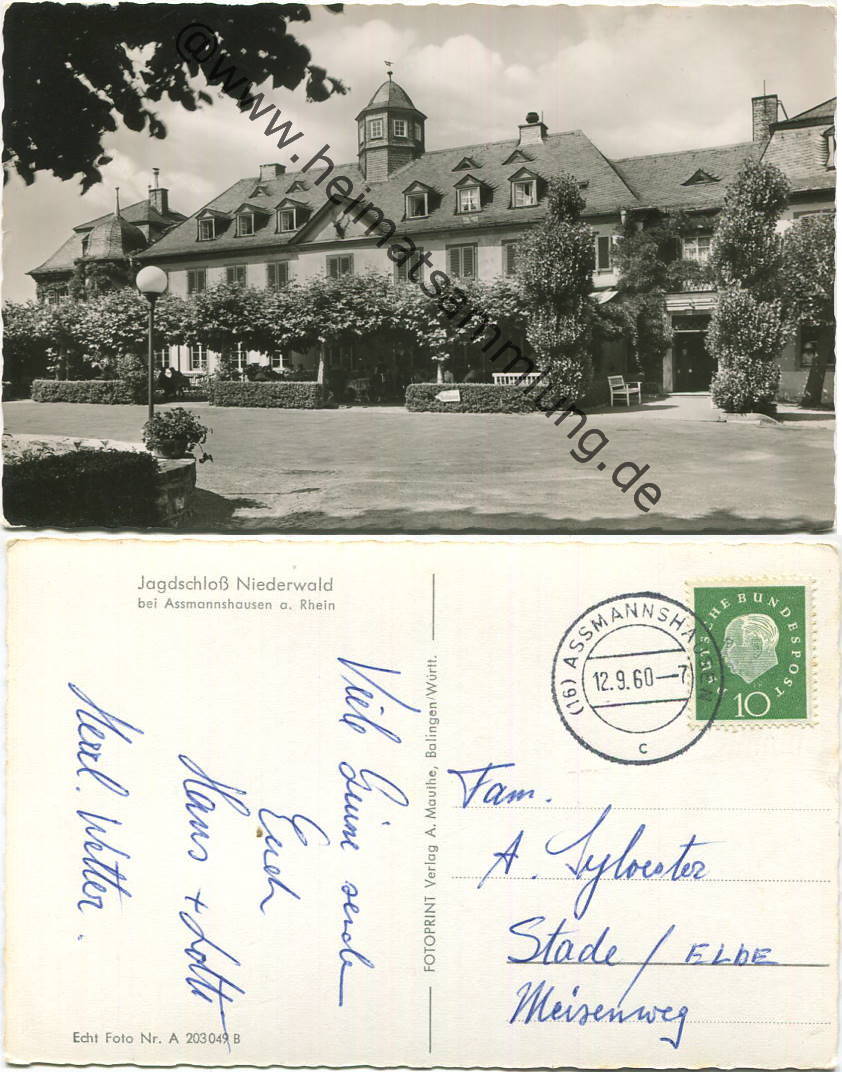 @www.heimatsammlung.de
Jagdschloß Niederwald
bei Assmannshausen a. Rhein
Viele Grüße sende
Euch
Hans + Lotti
Herrl. Wetter.
Echt Foto Nr. A 203049 B
FOTOPRINT Verlag A. Mauthe, Balingen/Württ.
(16) ASSMANNSHAUSEN
12.9.60—7
c
DEUTSCHE BUNDESPOST
10
Fam.
A. Sylvester
Stade / ELBE
Meisenweg